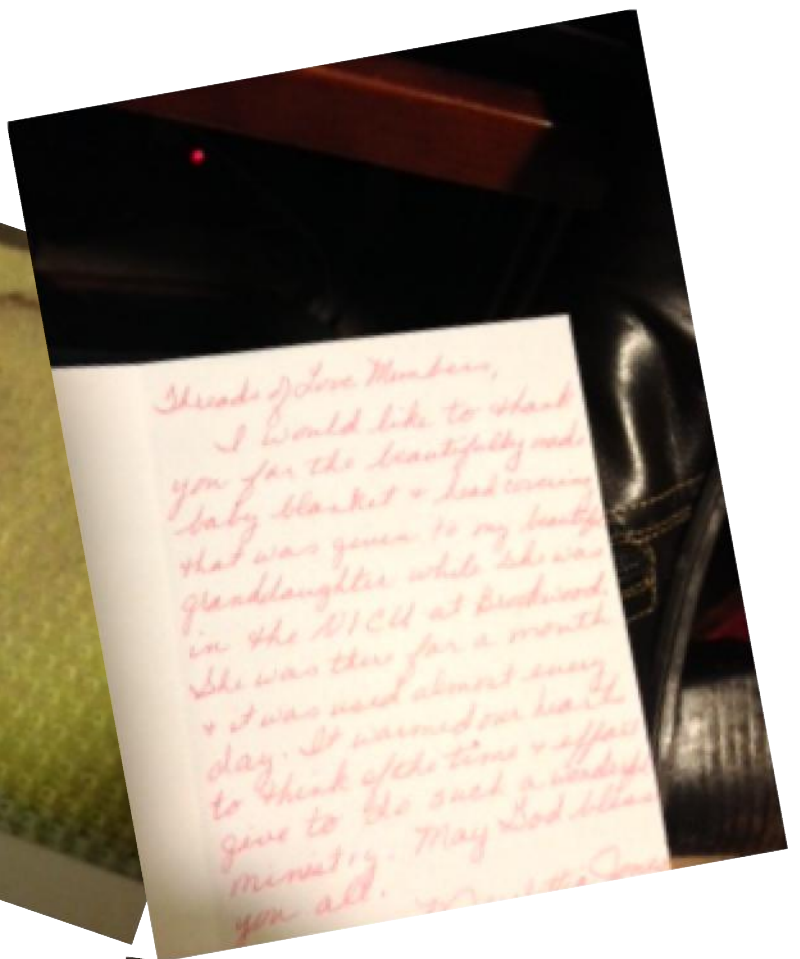 Threads of Love Members,
I would like to thank
you for the beautifully made
baby blanket + head covering
that was given to my
granddaughter while she was
in the NICU at Brookwood.
She was there for a month
+ it was used almost every
day. It warmed our heart
to think of the time + effort
give to the such a
ministry. May God bless
you all.